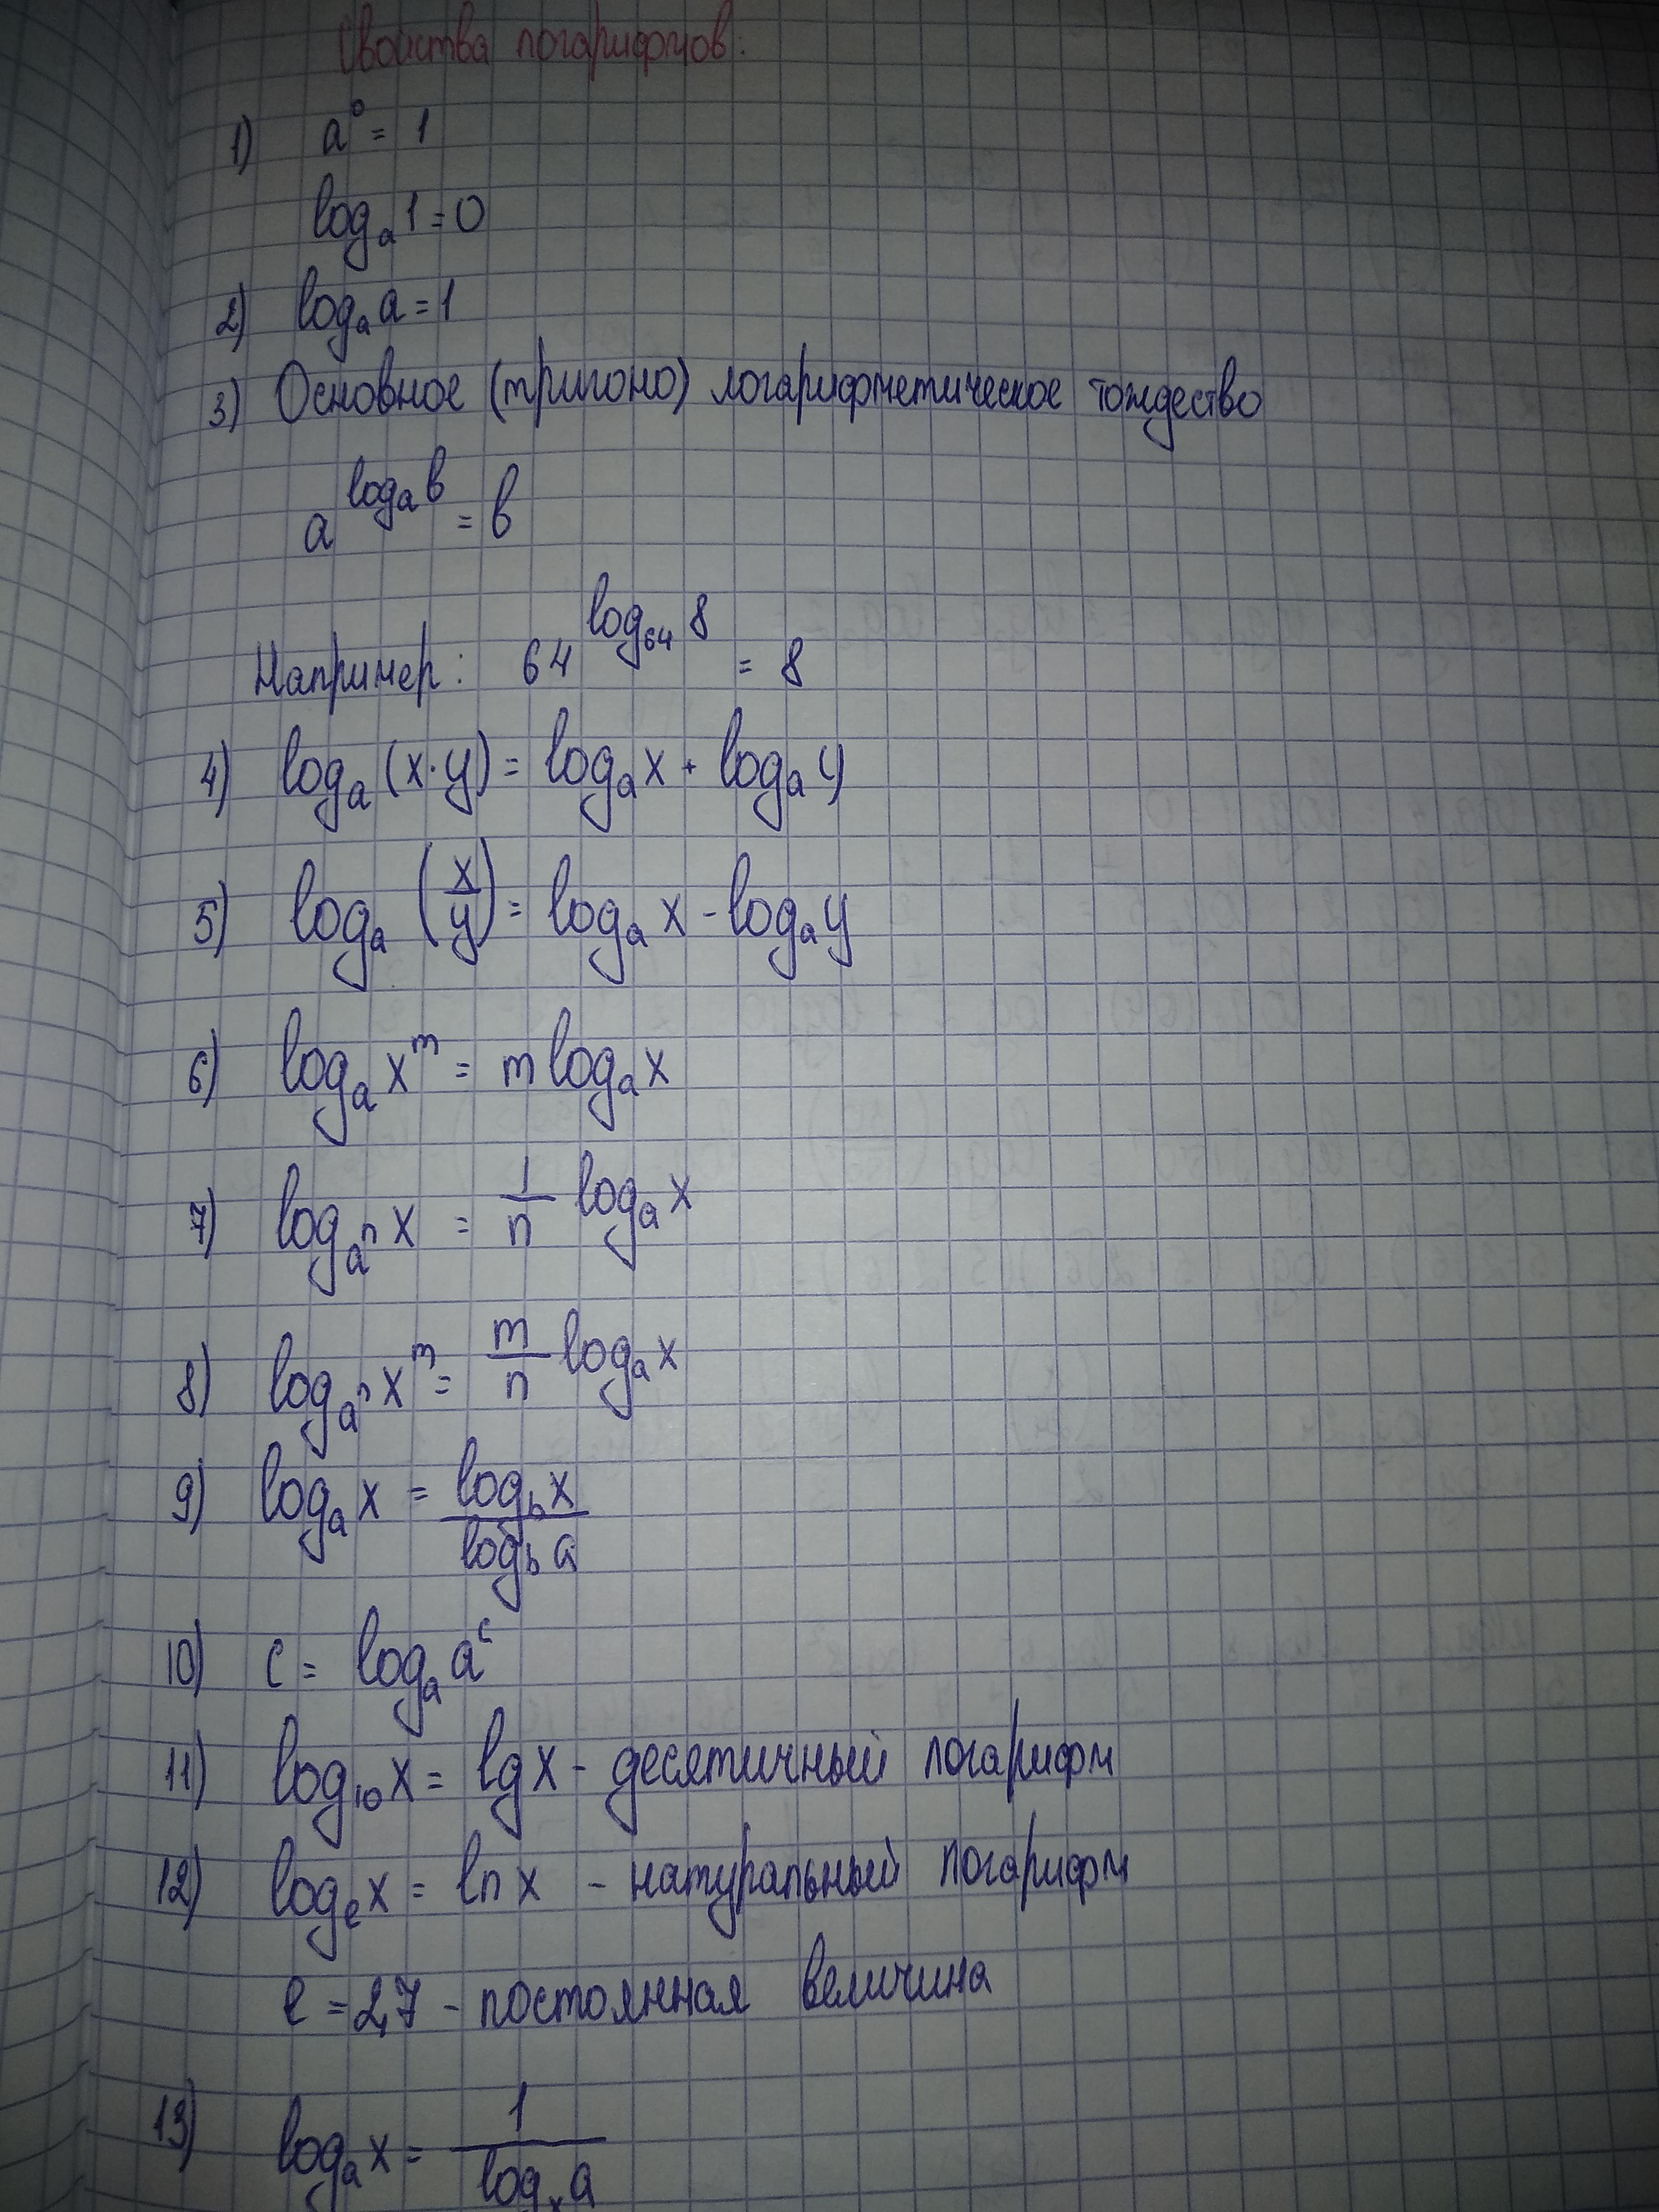 Свойства логарифмов:
1) a⁰ = 1
logₐ 1 = 0
2) logₐ a = 1
3) Основное (тригоно) логарифметическое тождество
a^(logₐ b) = b
Например: 64^(log₆₄ 8) = 8
4) logₐ (x·y) = logₐ x + logₐ y
5) logₐ (x/y) = logₐ x - logₐ y
6) logₐ x^m = m logₐ x
7) log_(a^n) x = 1/n logₐ x
8) log_(a^n) x^m = m/n logₐ x
9) logₐ x = log_b x / log_b a
10) c = logₐ a^c
11) log₁₀ x = lg x - десятичный логарифм
12) logₑ x = ln x - натуральный логарифм
e = 2,7 - постоянная величина
13) logₐ x = 1 / logₓ a